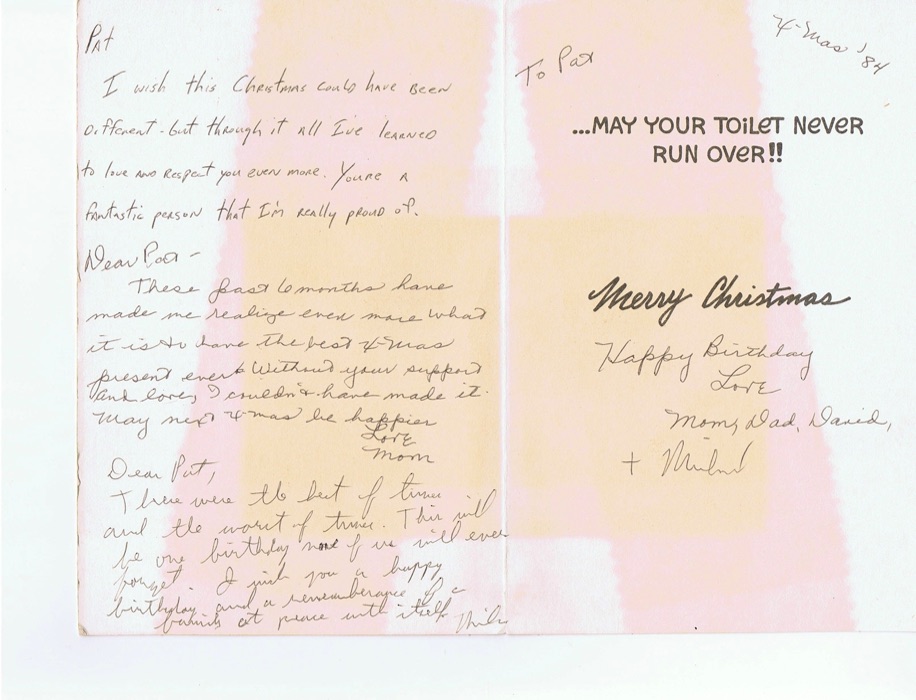 Pat
I wish this Christmas could have been
different - but through it all I've learned
to love and respect you even more. Youre a
fantastic person that I'm really proud of.
Dear Pat -
These past 6 months have
made me realize even more what
it is to have the best X-mas
present ever. Without your support
and love, I couldn't have made it.
May next X-mas be happier
Love
Mom
Dear Pat,
There were the best of times
and the worst of times. This will
be one birthday none of us will ever
forget. I wish you a happy
birthday and a rememberance of a
family at peace with itself.
To Pat
X-mas '84
...MAY YOUR TOILET NEVER
RUN OVER!!
Merry Christmas
Happy Birthday
Love
Mom, Dad, David,
+